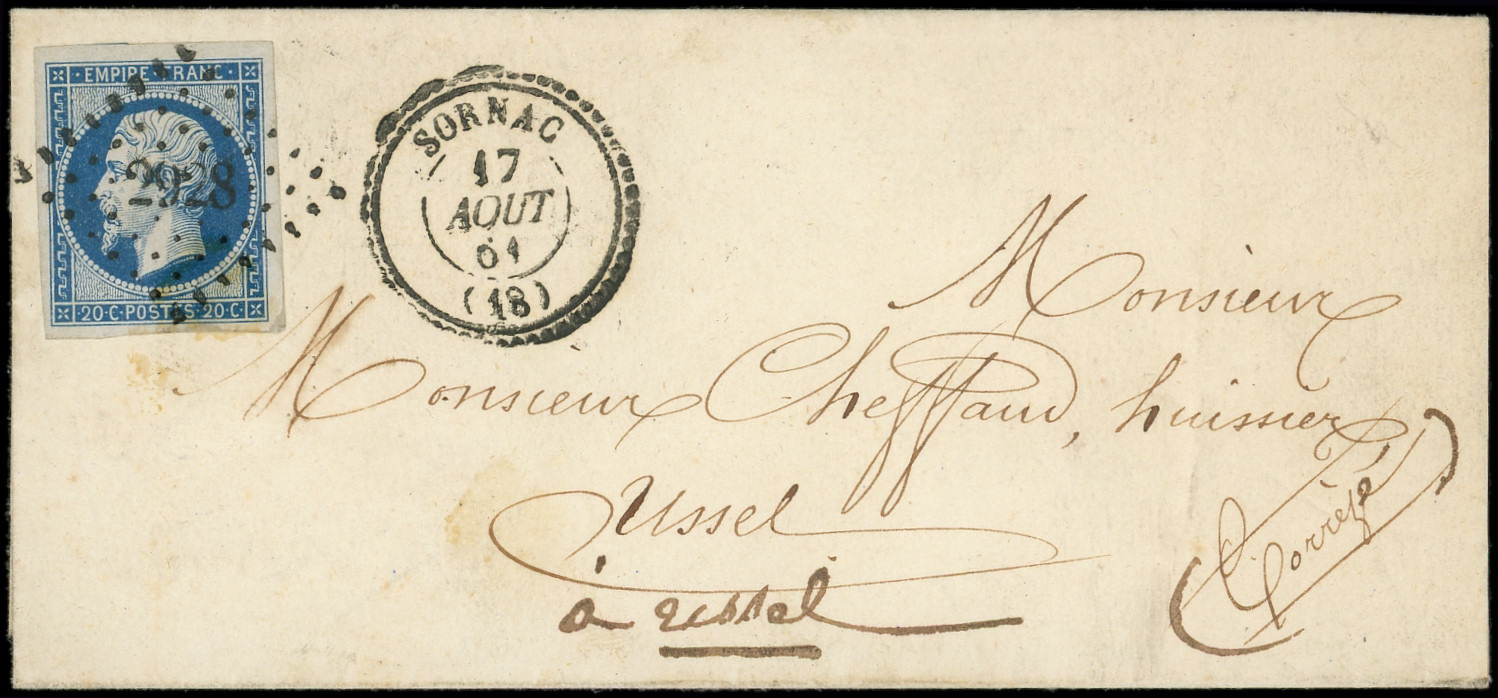 EMPIRE FRANC
2928
20·C·POSTES·20·C·
SORNAC
17
AOUT
61
(18)
Monsieur
Monsieur Cheffaud, huissier
Ussel
à Ussel
Corrèze